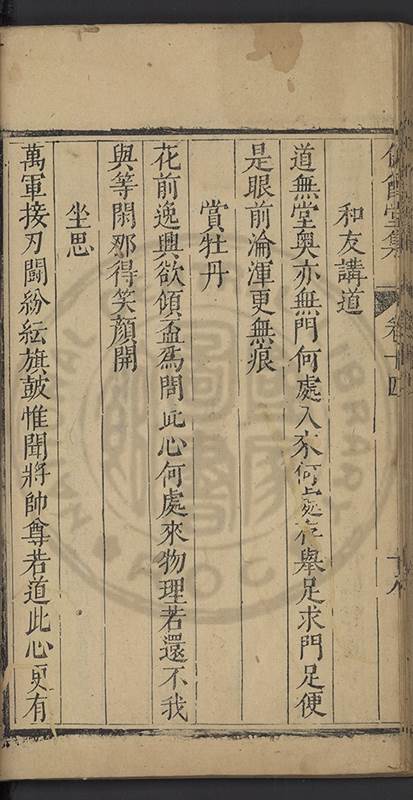 堂集　卷十四　十八
和友講道
道無堂奧亦無門何處入來何處存舉足求門足便
是眼前淪渾更無痕
賞牡丹
花前逸興欲傾盃為問此心何處來物理若還不我
與等閑那得笑顏開
坐思
萬軍接刃鬪紛紜旗鼓惟聞將帥尊若道此心更有